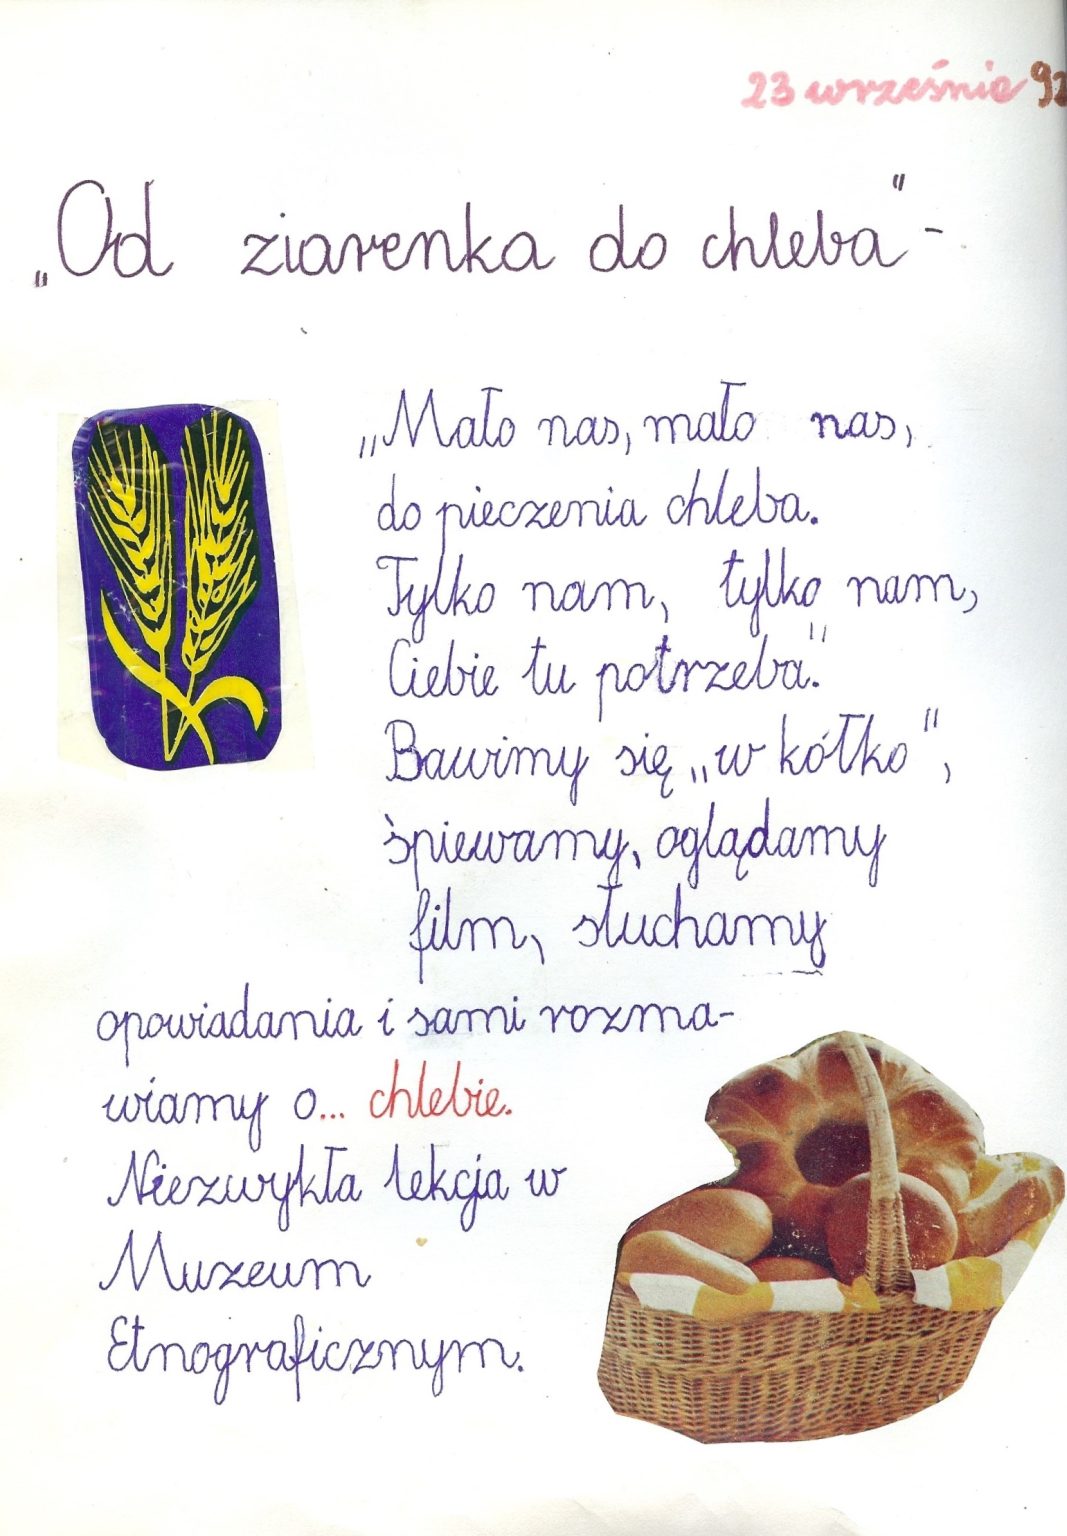 23 wrześnie 92
„Od ziarenka do chleba" -
„Mało nas, mało nas,
do pieczenia chleba.
Tylko nam, tylko nam,
Ciebie tu potrzeba".
Bawimy się „w kółko",
śpiewamy, oglądamy
film, słuchamy
opowiadania i sami rozma-
wiamy o... chlebie.
Niezwykła lekcja w
Muzeum
Etnograficznym.